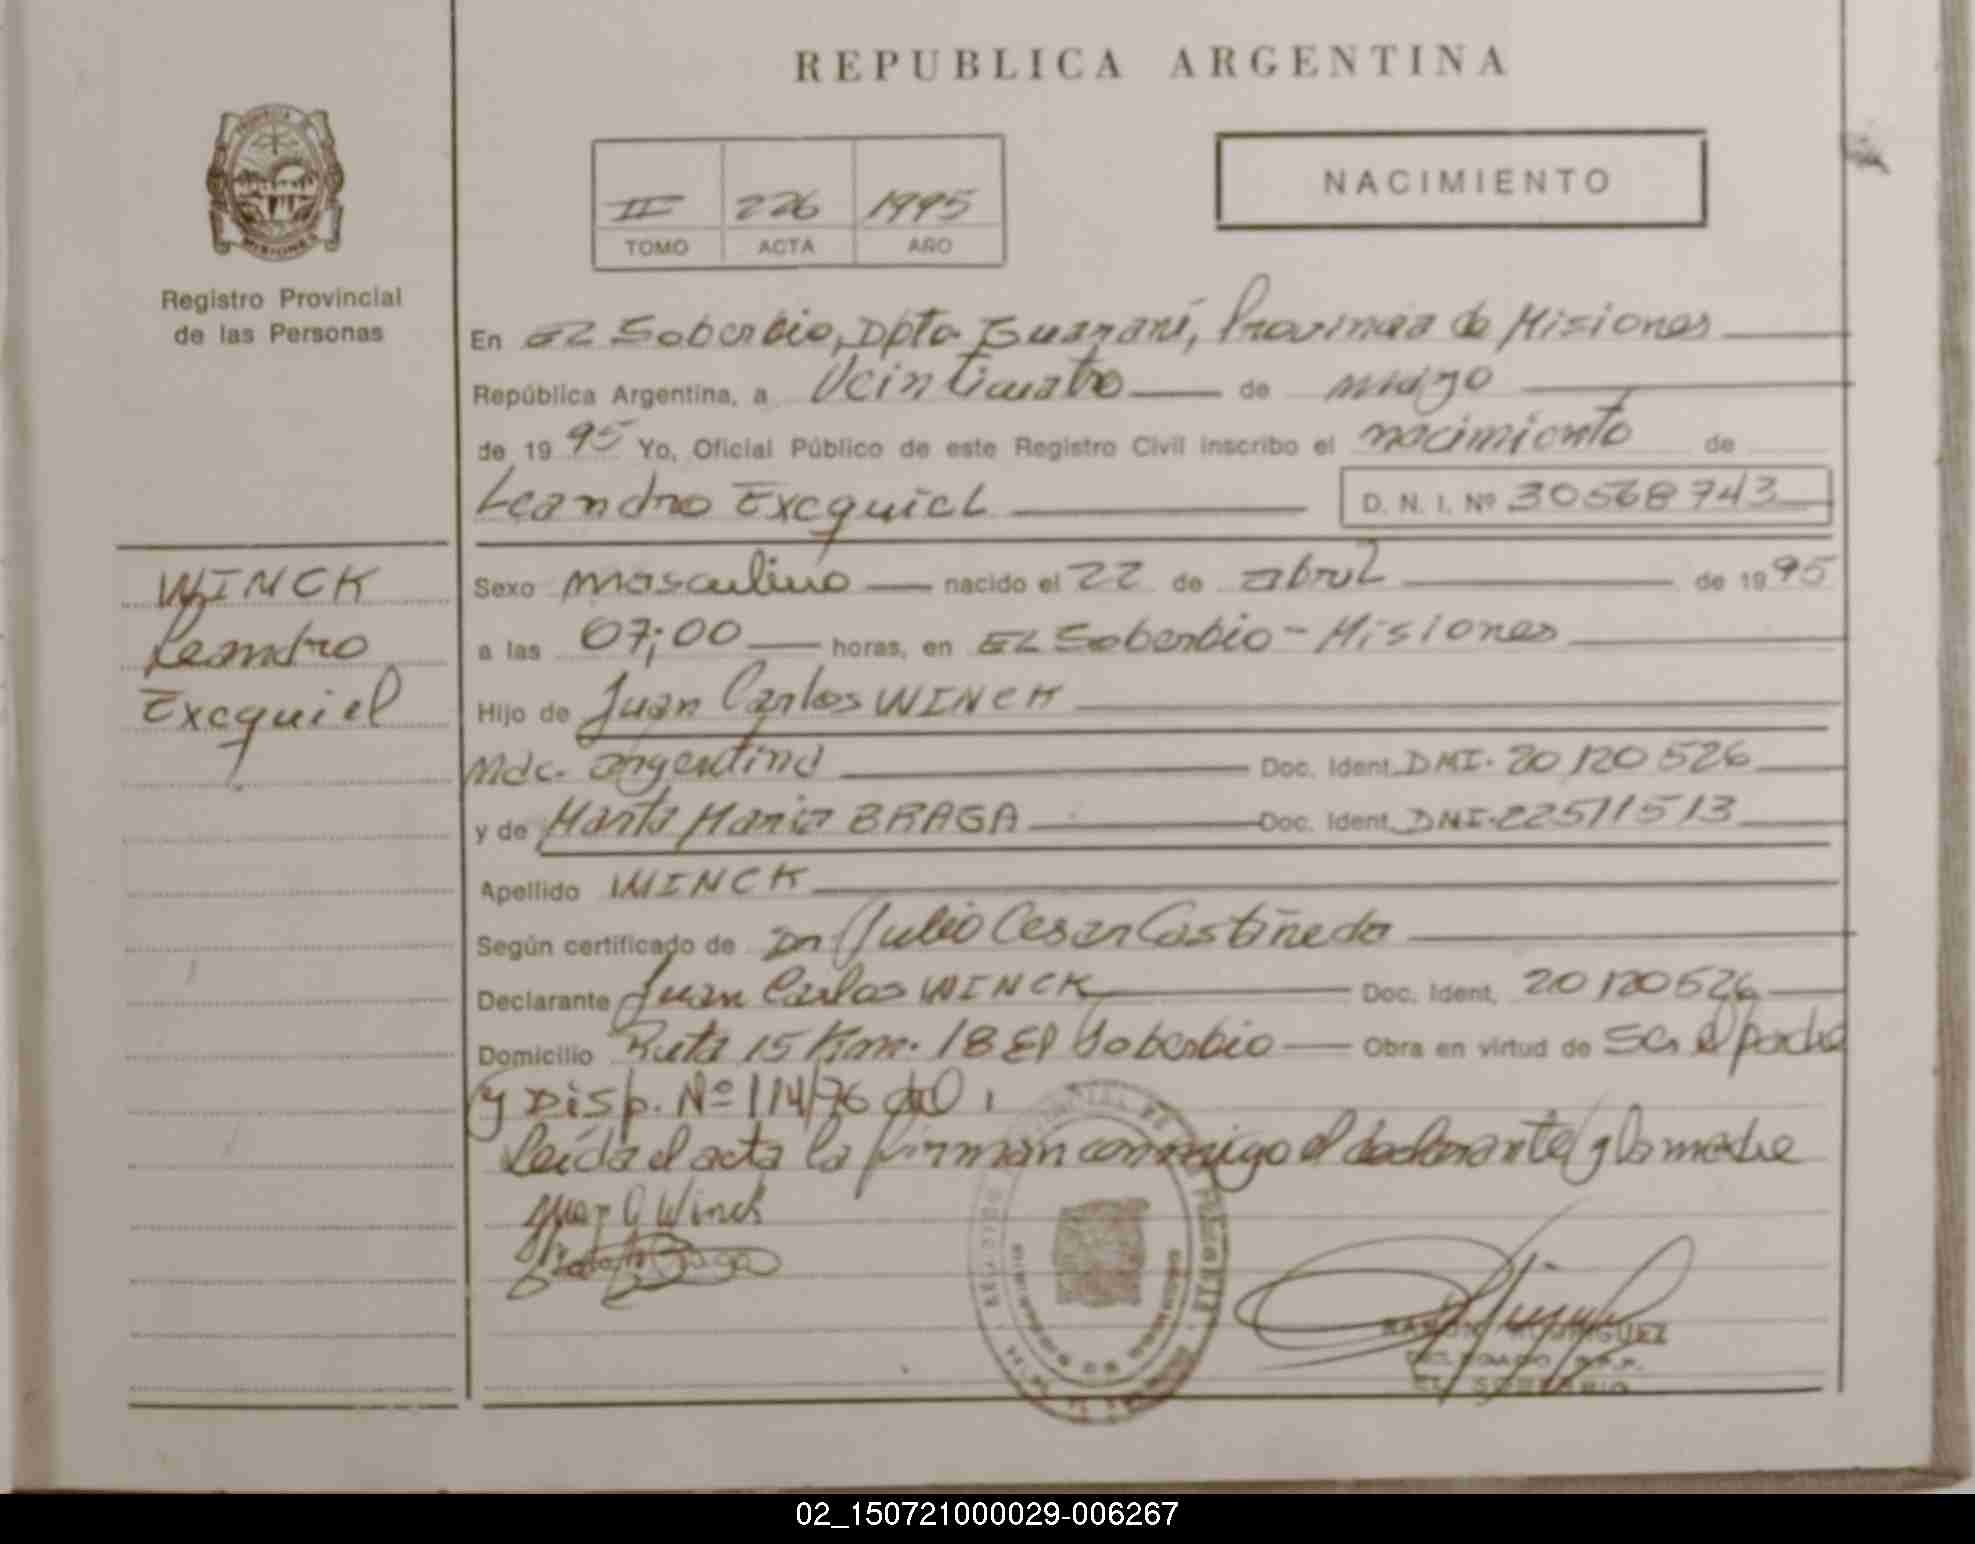 REPUBLICA ARGENTINA
II 226 1995
TOMO ACTA AÑO
NACIMIENTO
MISIONES
Registro Provincial
de las Personas
En EL Soberbio, Dpto Guaraní, Provincia de Misiones
República Argentina, a Veinticuatro de mayo
de 1995 Yo, Oficial Público de este Registro Civil inscribo el nacimiento de
Leandro Exequiel D. N. I. Nº 30568743
WINCK
Leandro
Exequiel
Sexo masculino nacido el 22 de abril de 1995
a las 07;00 horas, en EL Soberbio - Misiones
Hijo de Juan Carlos WINCK
Nac. argentina Doc. Ident. DNI. 20120526
y de Marta Maria BRAGA Doc. Ident. DNI. 22511513
Apellido WINCK
Según certificado de Dr Julio Cesar Castiñeda
Declarante Juan Carlos WINCK Doc. Ident. 20120526
Domicilio Ruta 15 Km. 18 El Soberbio Obra en virtud de ser el padre
y Disp. Nº 114/76
Leída el acta la firman conmigo el declarante y la madre
Juan C Winck
Braga
EL SOBERBIO
02_150721000029-006267